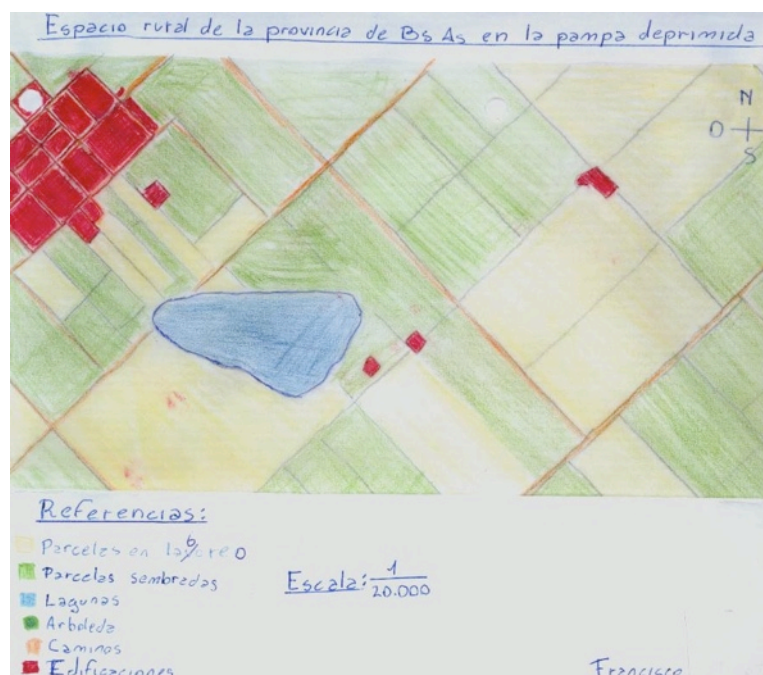 Espacio rural de la provincia de Bs As en la pampa deprimida
N
O
S
Referencias:
Parcelas en laboreo
Parcelas sembradas
Escala: 1/20.000
Lagunas
Arboleda
Caminos
Edificaciones
Francisco